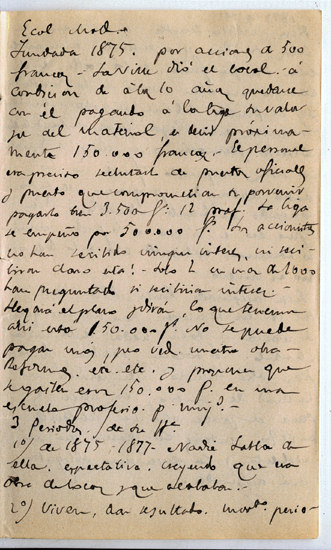 Ecol Mod.
Fundada 1875. por acciones de 500
francos - La Ville dió el local - á
condicion de á los 10 años quedarse
con él pagando á la liga su valor
del material, es decir próxima-
mente 150.000 francos. El personal
era preciso reclutarlo de puestos oficiales
y puesto que comprometian su porvenir
pagarlo bien 3.500 f. 12 prof. La liga
se empeñó por 500.000 f. Los accionistas
no han recibido ningun interes, ni reci-
biran claro esta! - solo 2 en mas de 2000
han preguntado si recibirian interes -
llegará el plazo y dirán, lo que tenemos
ahi esto 150.000 f. No se puede
pagar mas, pero ved. nuestra obra
Reformas. etc. etc. y proponen que
se gasten esos 150.000 f. en una
escuela profesio. p. muj.
3 Periodos. de su
1º) de 1875-1877 - Nadie habla de
ella. expectativa. creyendo que era
obra de locos y que acababa.
2º) Viven, dan resultado. perio-